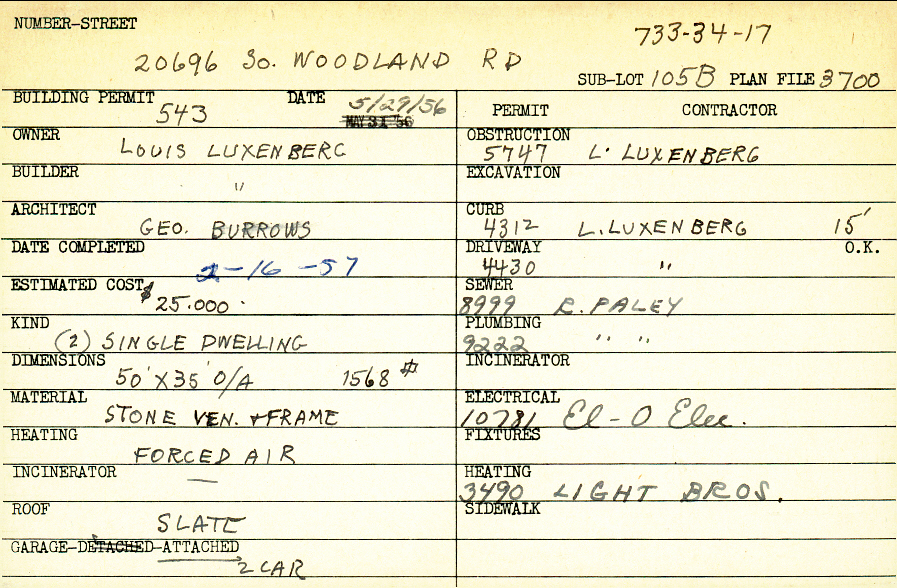 NUMBER-STREET
733-34-17
20696 So. WOODLAND RD
SUB-LOT 105B PLAN FILE 3700
BUILDING PERMIT 543 DATE 5/29/56
MAY 31 '56
OWNER LOUIS LUXENBERG
BUILDER "
ARCHITECT GEO. BURROWS
DATE COMPLETED 2-16-57
ESTIMATED COST $25.000.
KIND (2) SINGLE DWELLING
DIMENSIONS 50' X 35' O/A 1568 #
MATERIAL STONE VEN. + FRAME
HEATING FORCED AIR
INCINERATOR —
ROOF SLATE
GARAGE-DETACHED-ATTACHED
2 CAR
PERMIT CONTRACTOR
OBSTRUCTION
5747 L. LUXENBERG
EXCAVATION
CURB
4312 L. LUXENBERG 15'
DRIVEWAY O.K.
4430 "
SEWER
8999 R. PALEY
PLUMBING
9222 " "
INCINERATOR
ELECTRICAL
10781 El-O Elec.
FIXTURES
HEATING
3490 LIGHT BROS.
SIDEWALK